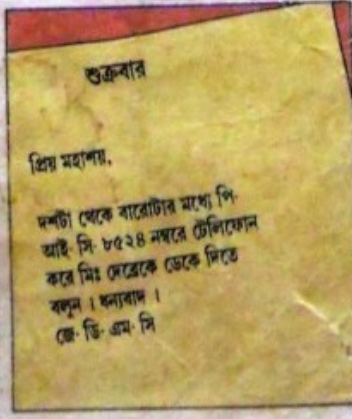 শুক্রবার
প্রিয় মহাশয়,
দশটা থেকে বারোটার মধ্যে পি·
আই· সি· ৮৫২৪ নম্বরে টেলিফোন
করে মিঃ দেব্রেকে ডেকে দিতে
বলুন । ধন্যবাদ ।
জে· ডি· এম· সি